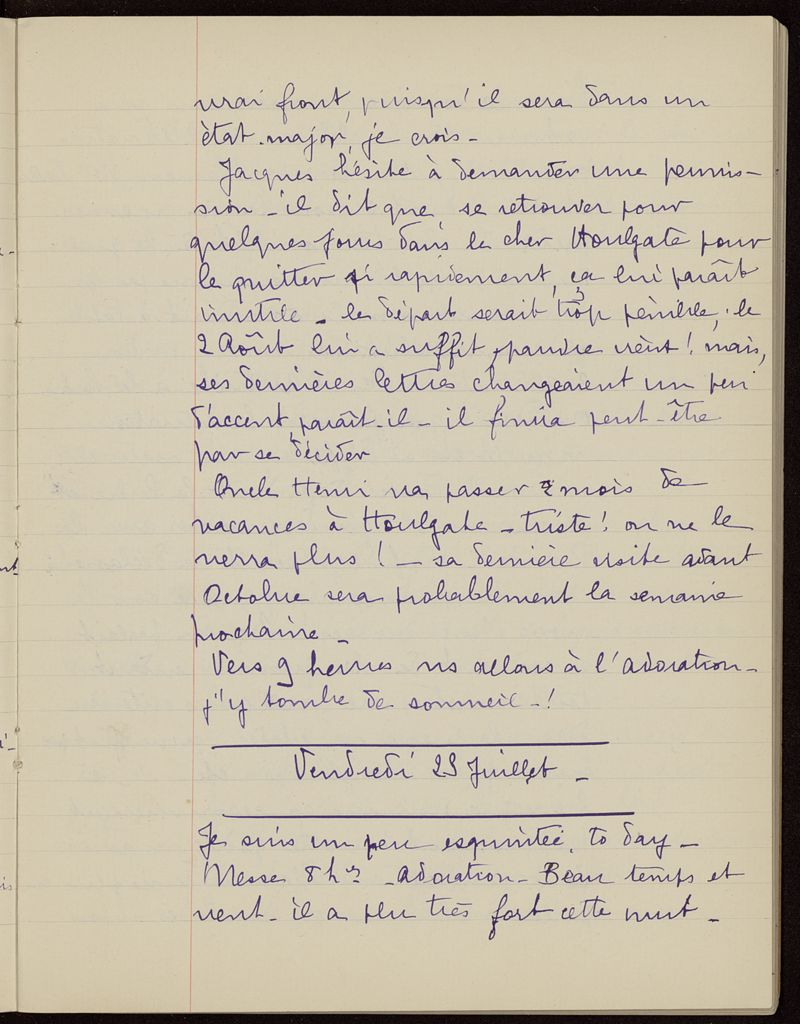 vrai front, puisqu'il sera dans un
état-major, je crois -
Jacques hésite à demander une permis-
sion - il dit que se retrouver pour
quelques jours dans le cher Houlgate pour
le quitter si rapidement, ça lui paraît
inutile - le départ serait trop pénible, le
2 Août lui a suffit, pauvre vieux! mais,
ses dernières lettres changeaient un peu
d'accent, paraît-il - il finira peut-être
par se décider
Oncle Henri va passer 2 mois de
vacances à Houlgate - triste! on ne le
verra plus! - sa dernière visite avant
Octobre sera probablement la semaine
prochaine -
Vers 9 heures ns allons à l'adoration -
j'y tombe de sommeil -!
Vendredi 23 Juillet -
Je suis un peu esquintée, to day -
Messe 8 hes - adoration - Beau temps et
vent - il a plu très fort cette nuit -